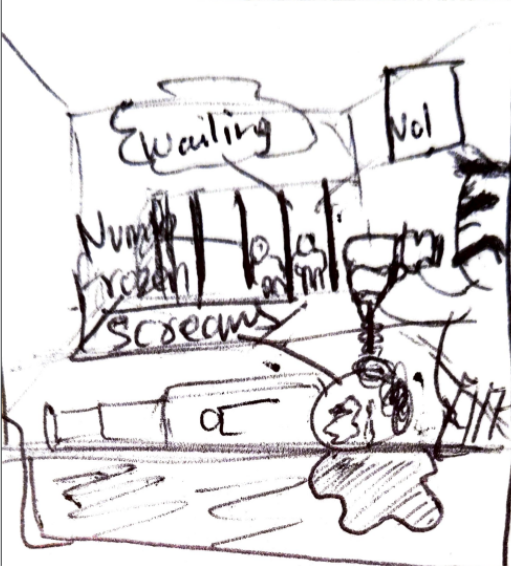 Wailing
Numb
frozen
screams